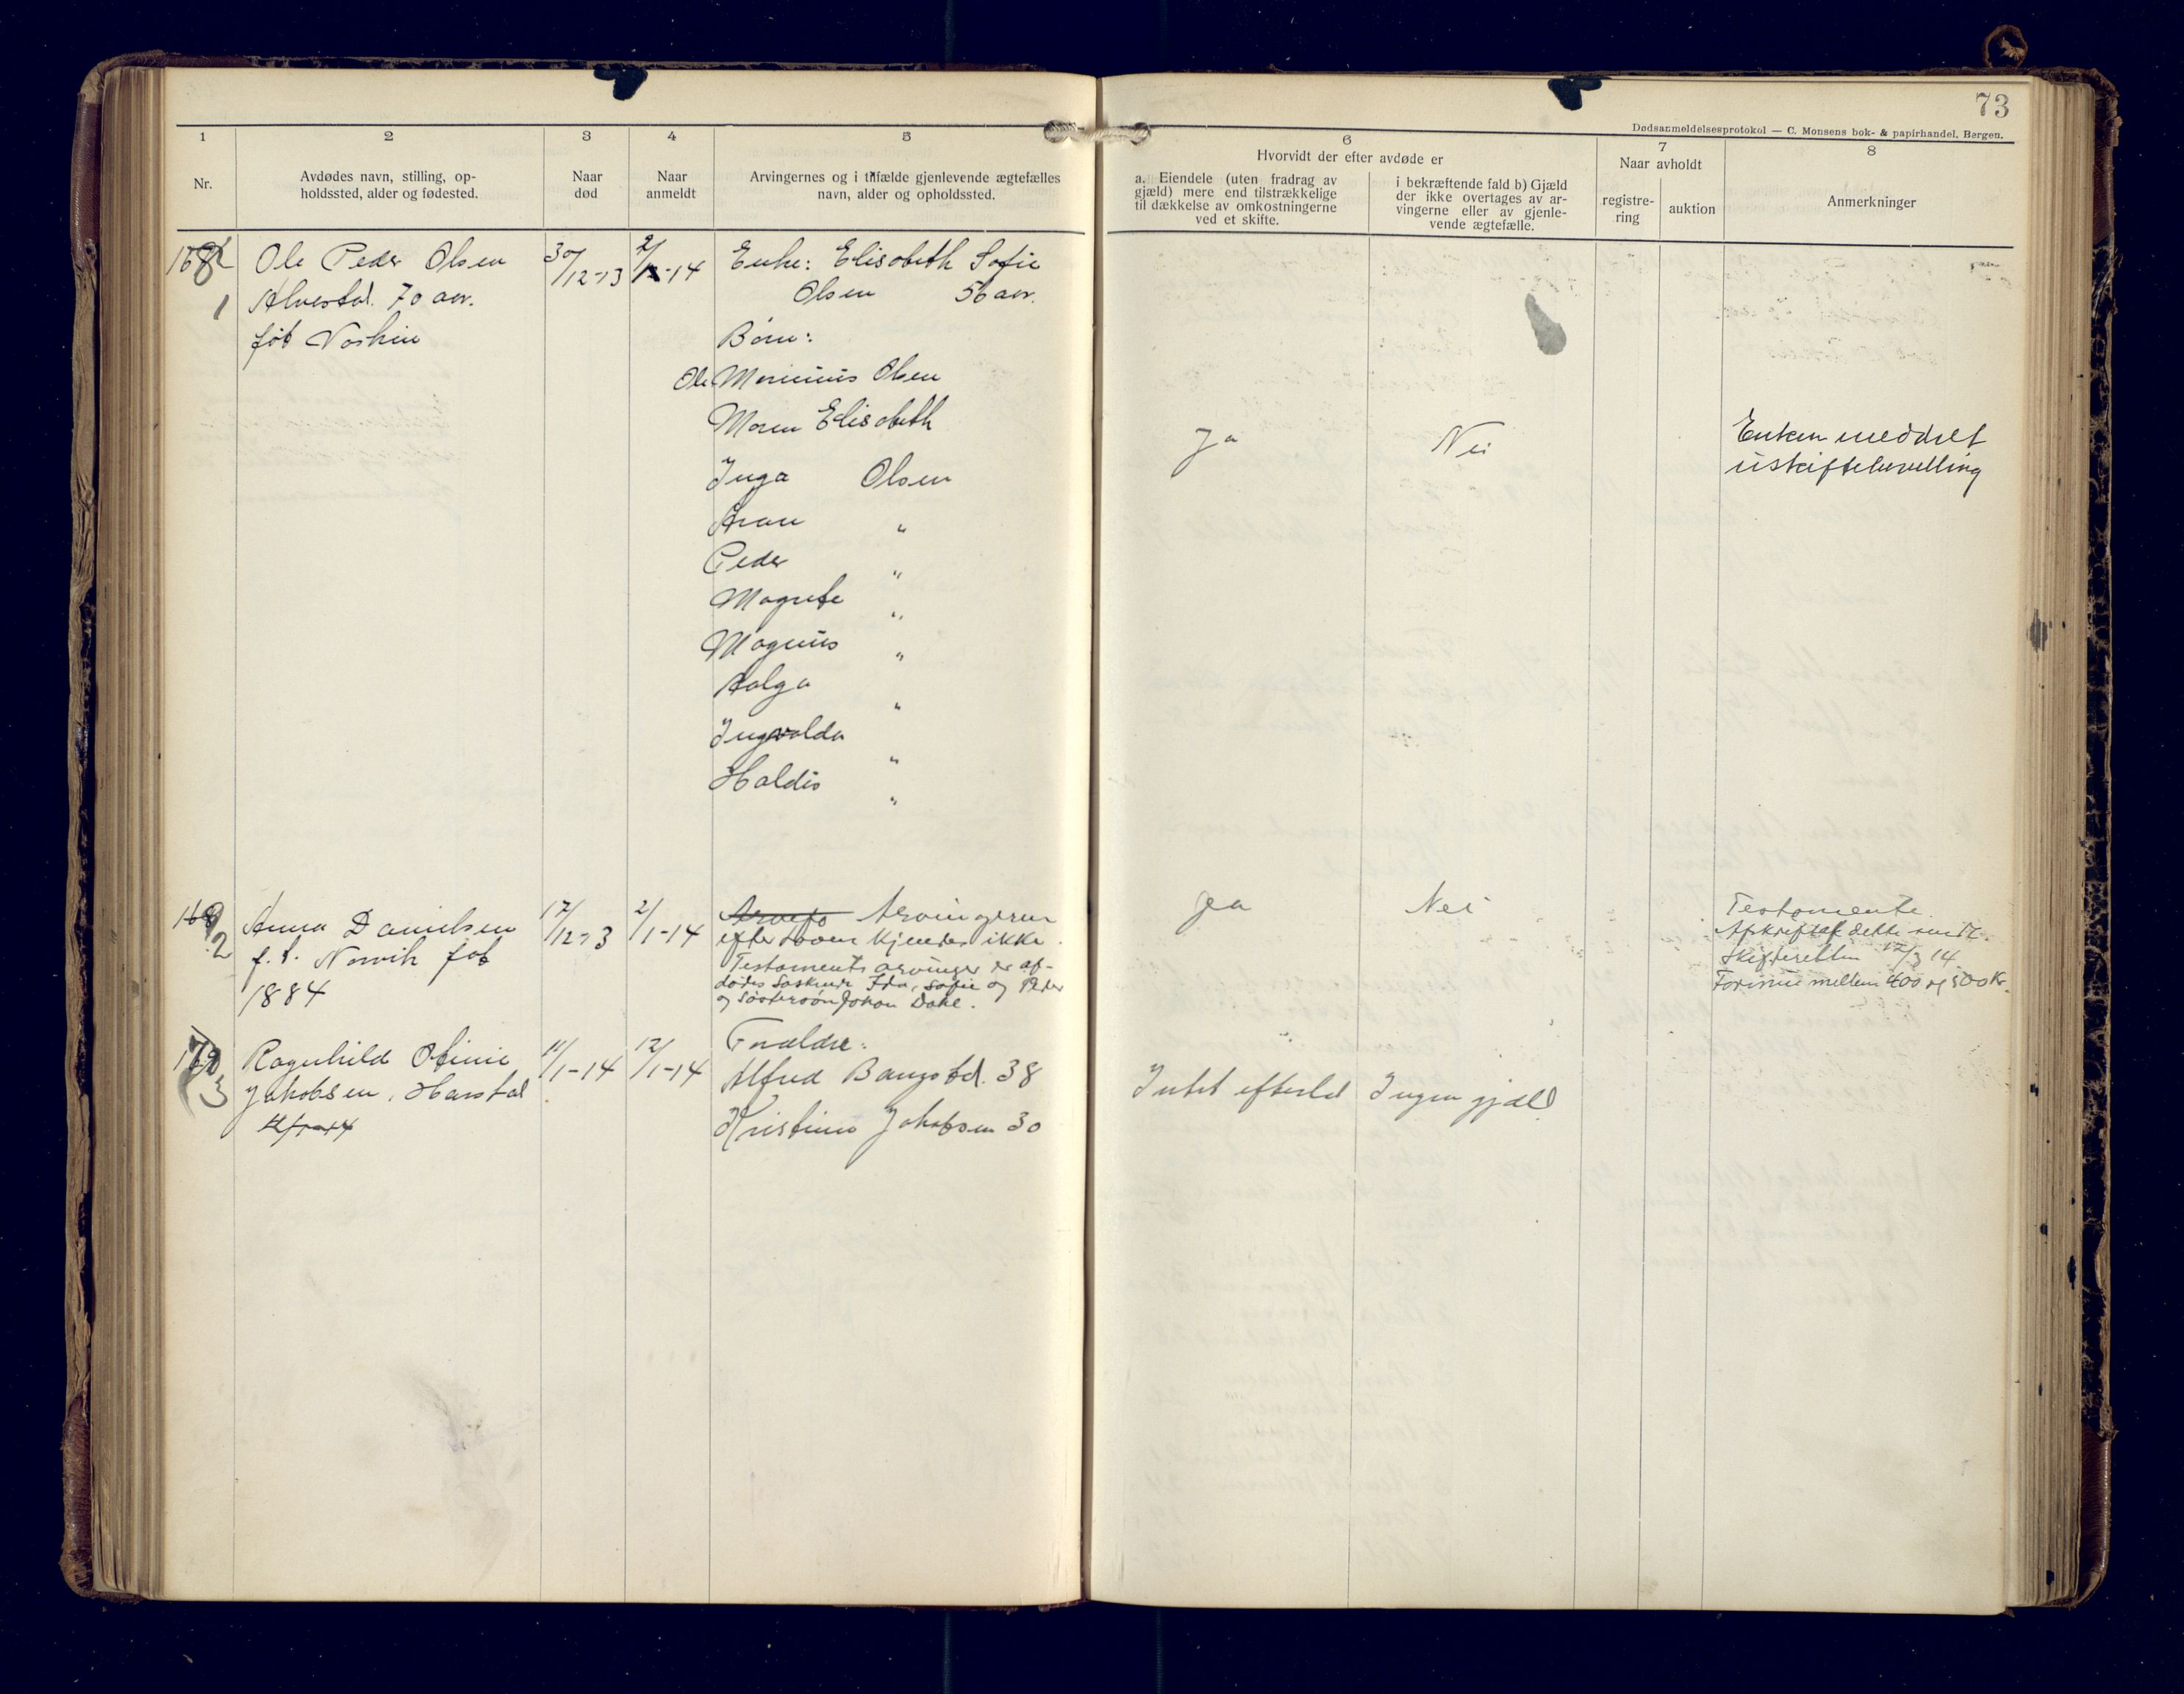 73
Dødsanmeldelsesprotokol — C. Monsens bok- & papirhandel. Bergen.
1
2
3
4
5
6
7
8
Nr.
Avdødes navn, stilling, op-
holdssted, alder og fødested.
Naar
død
Naar
anmeldt
Arvingernes og i tilfælde gjenlevende ægtefælles
navn, alder og opholdssted.
Hvorvidt der efter avdøde er
a. Eiendele (uten fradrag av
gjæld) mere end tilstrækkelige
til dækkelse av omkostningerne
ved et skifte.
i bekræftende fald b) Gjæld
der ikke overtages av ar-
vingerne eller av gjenle-
vende ægtefælle.
Naar avholdt
registre-
ring
auktion
Anmerkninger
168
1
Ole Peder Olsen
70 aar.
fød
30/12-13
2/1-14
Enke: Elisabeth Sofie
Olsen 56 aar.
Børn:
Ole Marinius Olsen
Maren Elisabeth
Inga Olsen
"
Peder "
Magrete "
Magnus "
Aslga "
Ingvalda "
Haldis "
Ja
Nei
Enken meddelt
uskiftebevilling
169
2
Anna Danielsen
f. i. Narvik fød
1884
17/12-13
2/1-14
Arvingerne
efter loven kjendes ikke.
Testaments arvinger er af-
dødes søskende Ida, Sofie og Peder
og søstersøn Johan Dahl.
Ja
Nei
Testamente.
Afskrift af dette sendt
Skifteretten 12/3 14
Formue mellem 400 og 500 Kr.
170
3
Ragnhild Otinie
Jakobsen, Harstad
11/1-14
12/1-14
Forældre:
Alfred 38
Kristine Jakobsen 30
Intet efterlat
Ingen gjæld